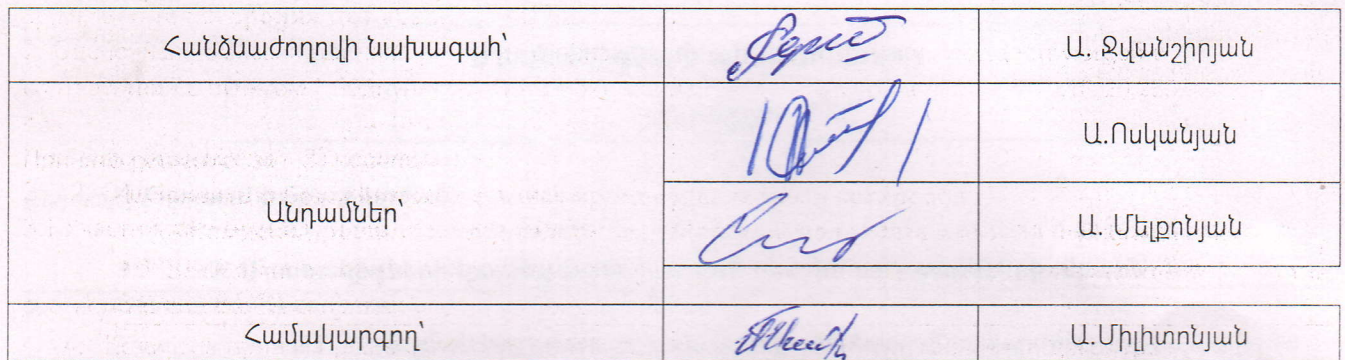 Հանձնաժողովի նախագահ՝ Ա. Ջվանշիրյան
Ա.Ոսկանյան
Անդամներ՝
Ա. Մելքոնյան
Համակարգող՝ Ա.Միլիտոնյան